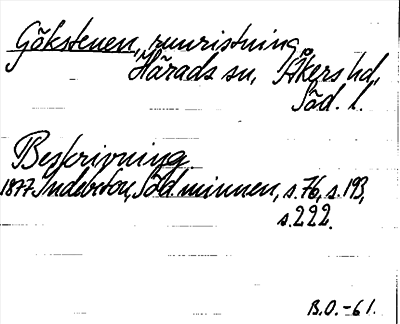 Göksteuen, runristning,
Härads sn, Åkers hd,
Söd. l.
Beskrivning
1877 Indebetou, Söd. minnen, s. 76, s. 193,
s. 222.
B.O. -61.